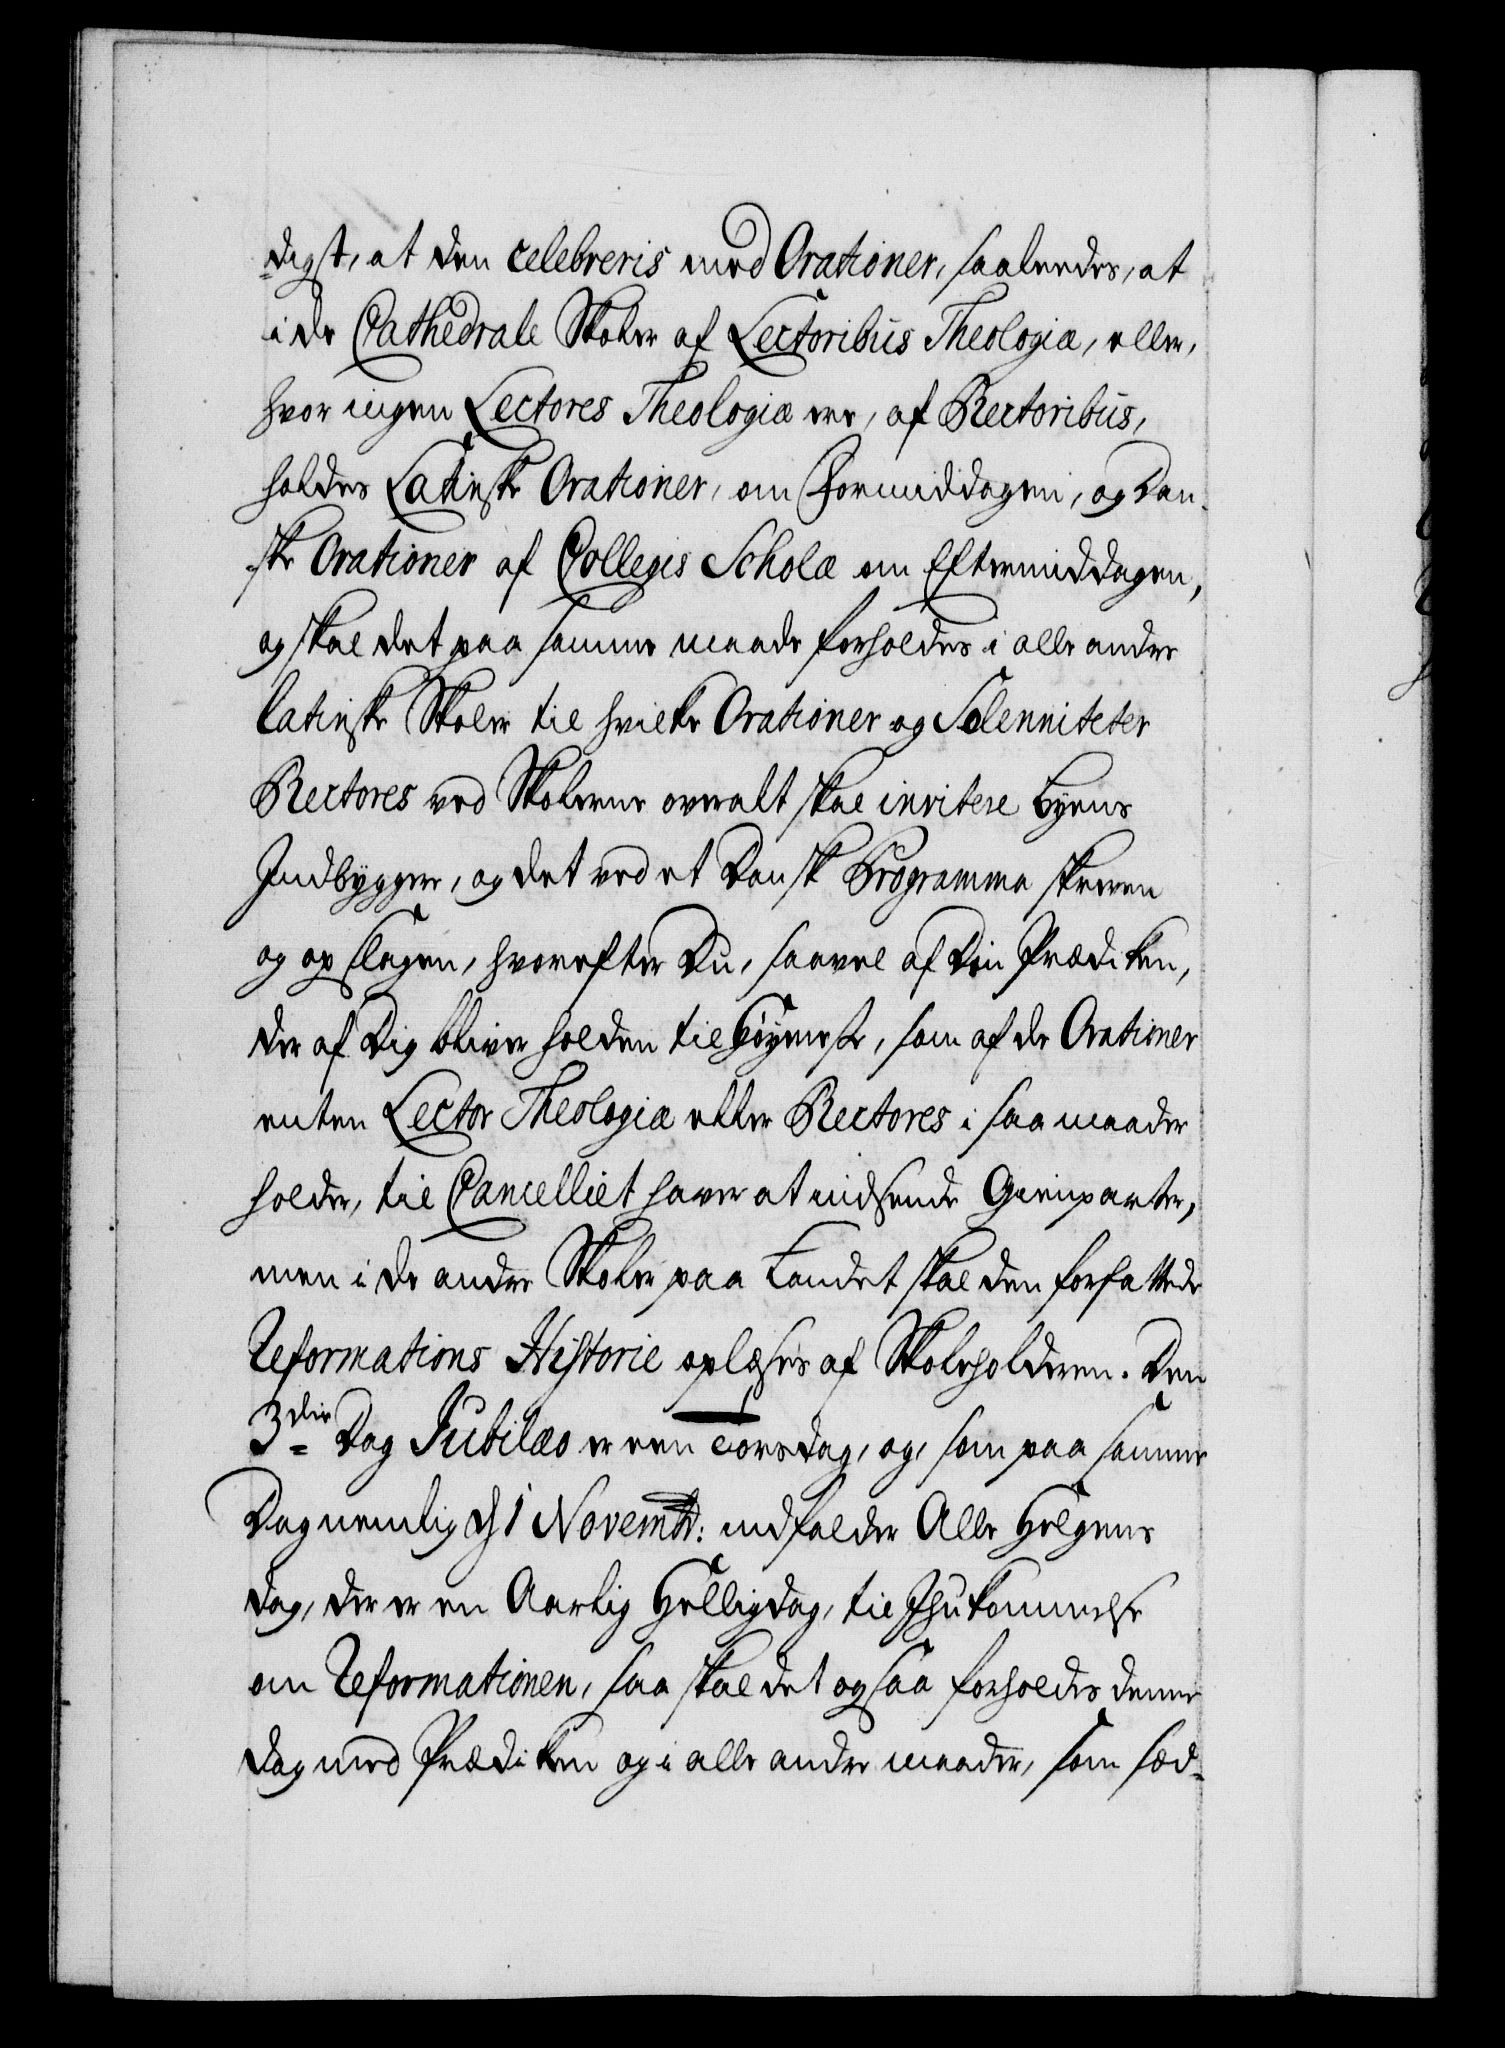 digst, at den celebreris med Orationer, saaleedes, at
i de Cathedrale Skoler af Lectoribus Theologiæ, eller,
hvor ingen Lectores Theologiæ ere, af Rectoribus,
holdes Latinske Orationer, om Formiddagen, og Dan-
ske Orationer af Collegis Scholæ om Eftermiddagen,
og skal det paa samme maade forholdes i alle andre
latinske Skoler til hvilke Orationer og Solenniteter
Rectores ved Skolerne overalt skal invitere Byens
Indbyggere, og det ved et Dansk Programma skreven
og opslagen, hvorefter Du, saavel af Din Prædiken,
der af Dig bliver holden til Høymesse, som af de Orationer
enten Lector Theologiæ eller Rectores i saa maader
holder, til Cancelliet haver at indsende Gienparter,
men i de andre Skoler paa Landet skal den forfattede
Reformations Historie oplæses af Skoleholderen. Den
3die Dag Jubilæo er een Torsdag, og, som paa samme
Dag nemlig d 1 Novembr: indfalder Alle Helgens
dag, der er en Aarlig Helligdag, til Ihukommelse
om Reformationen, saa skal det ogsaa forholdes denne
dag med Prædiken og i alle andre maader, som sæd-